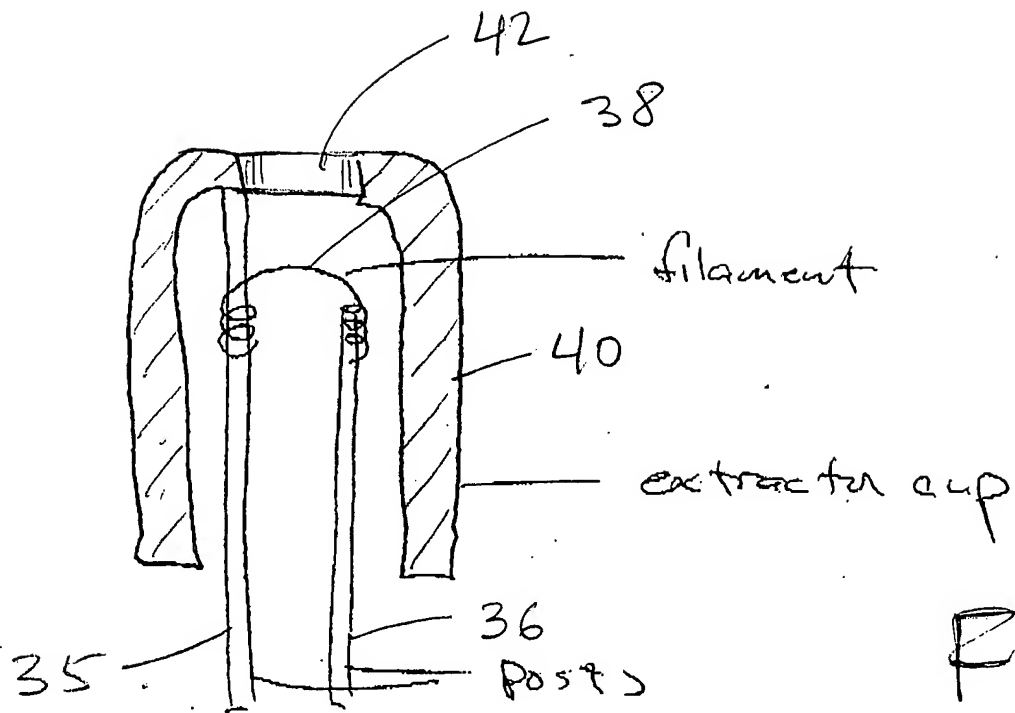 42
38
filament
40
extractor cup
36
35
posts
F